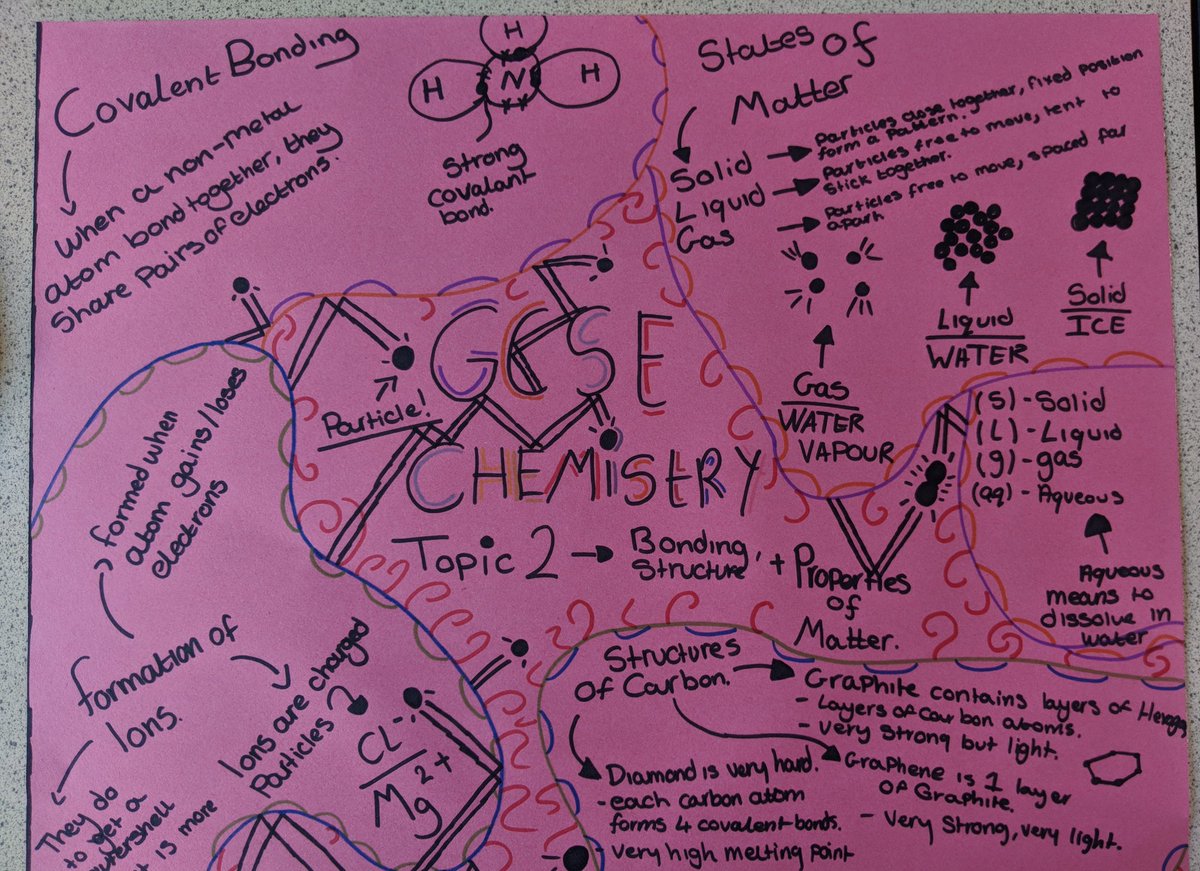 Covalent Bonding
When a non-metal
atom bond together, they
Share Pairs of electrons.
H
H
N
H
Strong
covalant
bond.
States of
Matter
Solid
Particles close together, fixed position
form a pattern.
Liquid
Particles free to move, tent to
stick together.
Gas
Particles free to move, spaced far
apart
Gas
WATER
VAPOUR
Liquid
WATER
Solid
ICE
(S) - Solid
(L) - Liquid
(g) - gas
(aq) - Aqueous
Aqueous
means to
dissolve in
water
GCSE
CHEMIStRY
Particle!
Topic 2 → Bonding,
Structure + Properties
of
Matter.
formation of
Ions.
formed when
atom gains/loses
electrons
Ions are charged
Particles
Cl-
Mg2+
They do
to get a
outershell
is more
Structures
of Carbon.
Graphite contains layers of
- Layers of Carbon atoms.
- Very strong but light.
Graphene is 1 layer
of Graphite.
- Very Strong, very light.
Diamond is very hard.
- each carbon atom
forms 4 covalent bonds.
- very high melting point